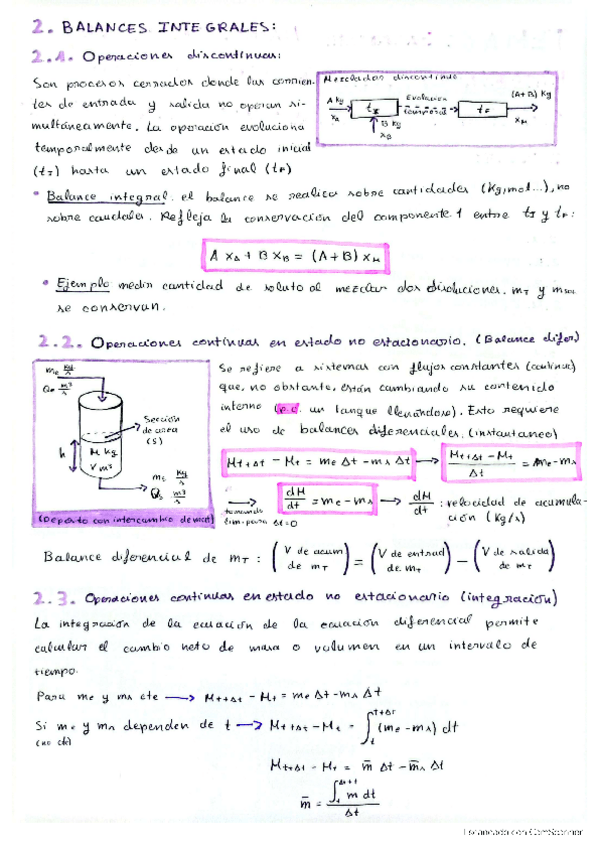 2. BALANCES INTEGRALES:
2.1. Operaciones discontinuas:
Son procesos cerrados donde las corrien-
tes de entrada y salida no operan si-
multáneamente. La operación evoluciona
temporalmente desde un estado inicial
(tI) hasta un estado final (tF)
Mezclador discontinuo
A kg
xA
tI
Evolución
temporal
tF
(A+B) kg
xM
B kg
xB
• Balance integral: el balance se realiza sobre cantidades (kg, mol...), no
sobre caudales. Refleja la conservación del componente 1 entre tI y tF:
A xA + B xB = (A+B) xM
• Ejemplo medir cantidad de soluto al mezclar dos disoluciones. mT y
se conservan.
2.2. Operaciones continuas en estado no estacionario. (Balance difer)
me kg/s
Qe m³/s
Sección
de area
(S)
h
M kg
V m³
ms kg/s
Qs m³/s
(Depósito con intercambio de masa)
Se refiere a sistemas con flujos constantes (continuo)
que, no obstante, están cambiando su contenido
interno (p.e. un tanque llenándose). Esto requiere
el uso de balances diferenciales. (instantaneo)
Mt+Δt - Mt = me Δt - ms Δt → Mt+Δt - Mt / Δt = me - ms
→ tomando lim. para Δt=0 dM/dt = me - ms → dM/dt : velocidad de acumula-
ción (kg/s)
Balance diferencial de mT : (V de acum de mT) = (V de entrad de mT) - (V de salida de mT)
2.3. Operaciones continuas en estado no estacionario (integración)
La integración de la ecuación de la ecuación diferencial permite
calcular el cambio neto de masa o volumen en un intervalo de
tiempo.
Para me y ms cte → Mt+Δt - Mt = me Δt - ms Δt
Si me y ms dependen de t → Mt+Δt - Mt = ∫t t+Δt (me - ms) dt
(no cte)
Mt+Δt - Mt = m̄ Δt - m̄s Δt
m̄ = ∫ m dt / Δt
Escaneado con CamScanner